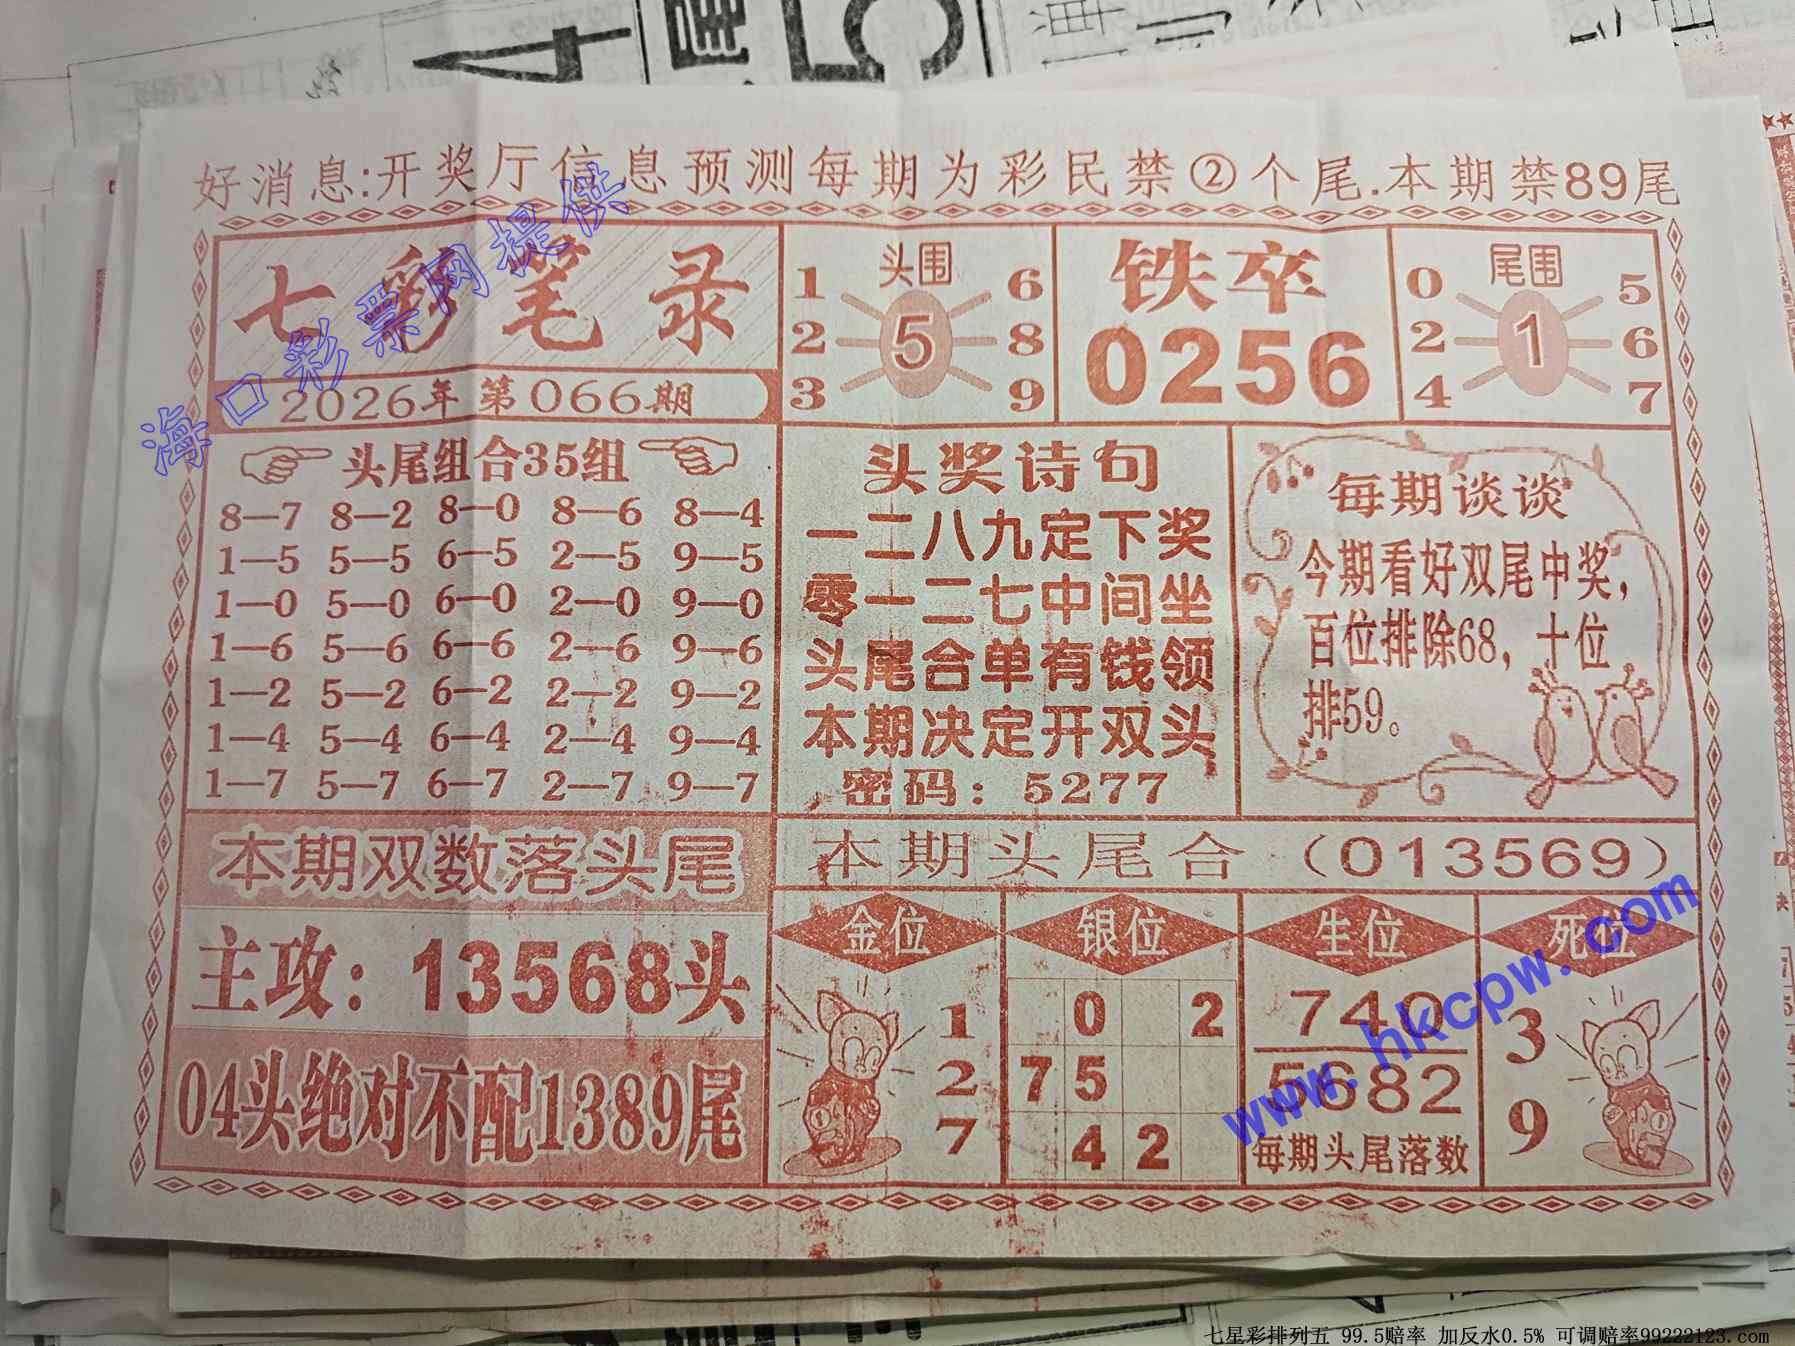 好消息:开奖厅信息预测每期为彩民禁②个尾.本期禁89尾
七彩笔录
2026年第066期
头围
1 6
2 5 8
3 9
铁卒
0256
尾围
0 5
2 1 6
4 7
头尾组合35组
8—7 8—2 8—0 8—6 8—4
1—5 5—5 6—5 2—5 9—5
1—0 5—0 6—0 2—0 9—0
1—6 5—6 6—6 2—6 9—6
1—2 5—2 6—2 2—2 9—2
1—4 5—4 6—4 2—4 9—4
1—7 5—7 6—7 2—7 9—7
头奖诗句
一二八九定下奖
零一二七中间坐
头尾合单有钱领
本期决定开双头
密码：5277
每期谈谈
今期看好双尾中奖，
百位排除68，十位
排59。
本期双数落头尾
主攻：13568头
04头绝对不配1389尾
本期头尾合（013569）
金位
1
2
7
银位
0 2
7 5
4 2
生位
740
5682
每期头尾落数
死位
3
9
海口彩票网提供
www.hkcpw.com
七星彩排列五 99.5赔率 加反水0.5% 可调赔率99222123.com
4
尾
5